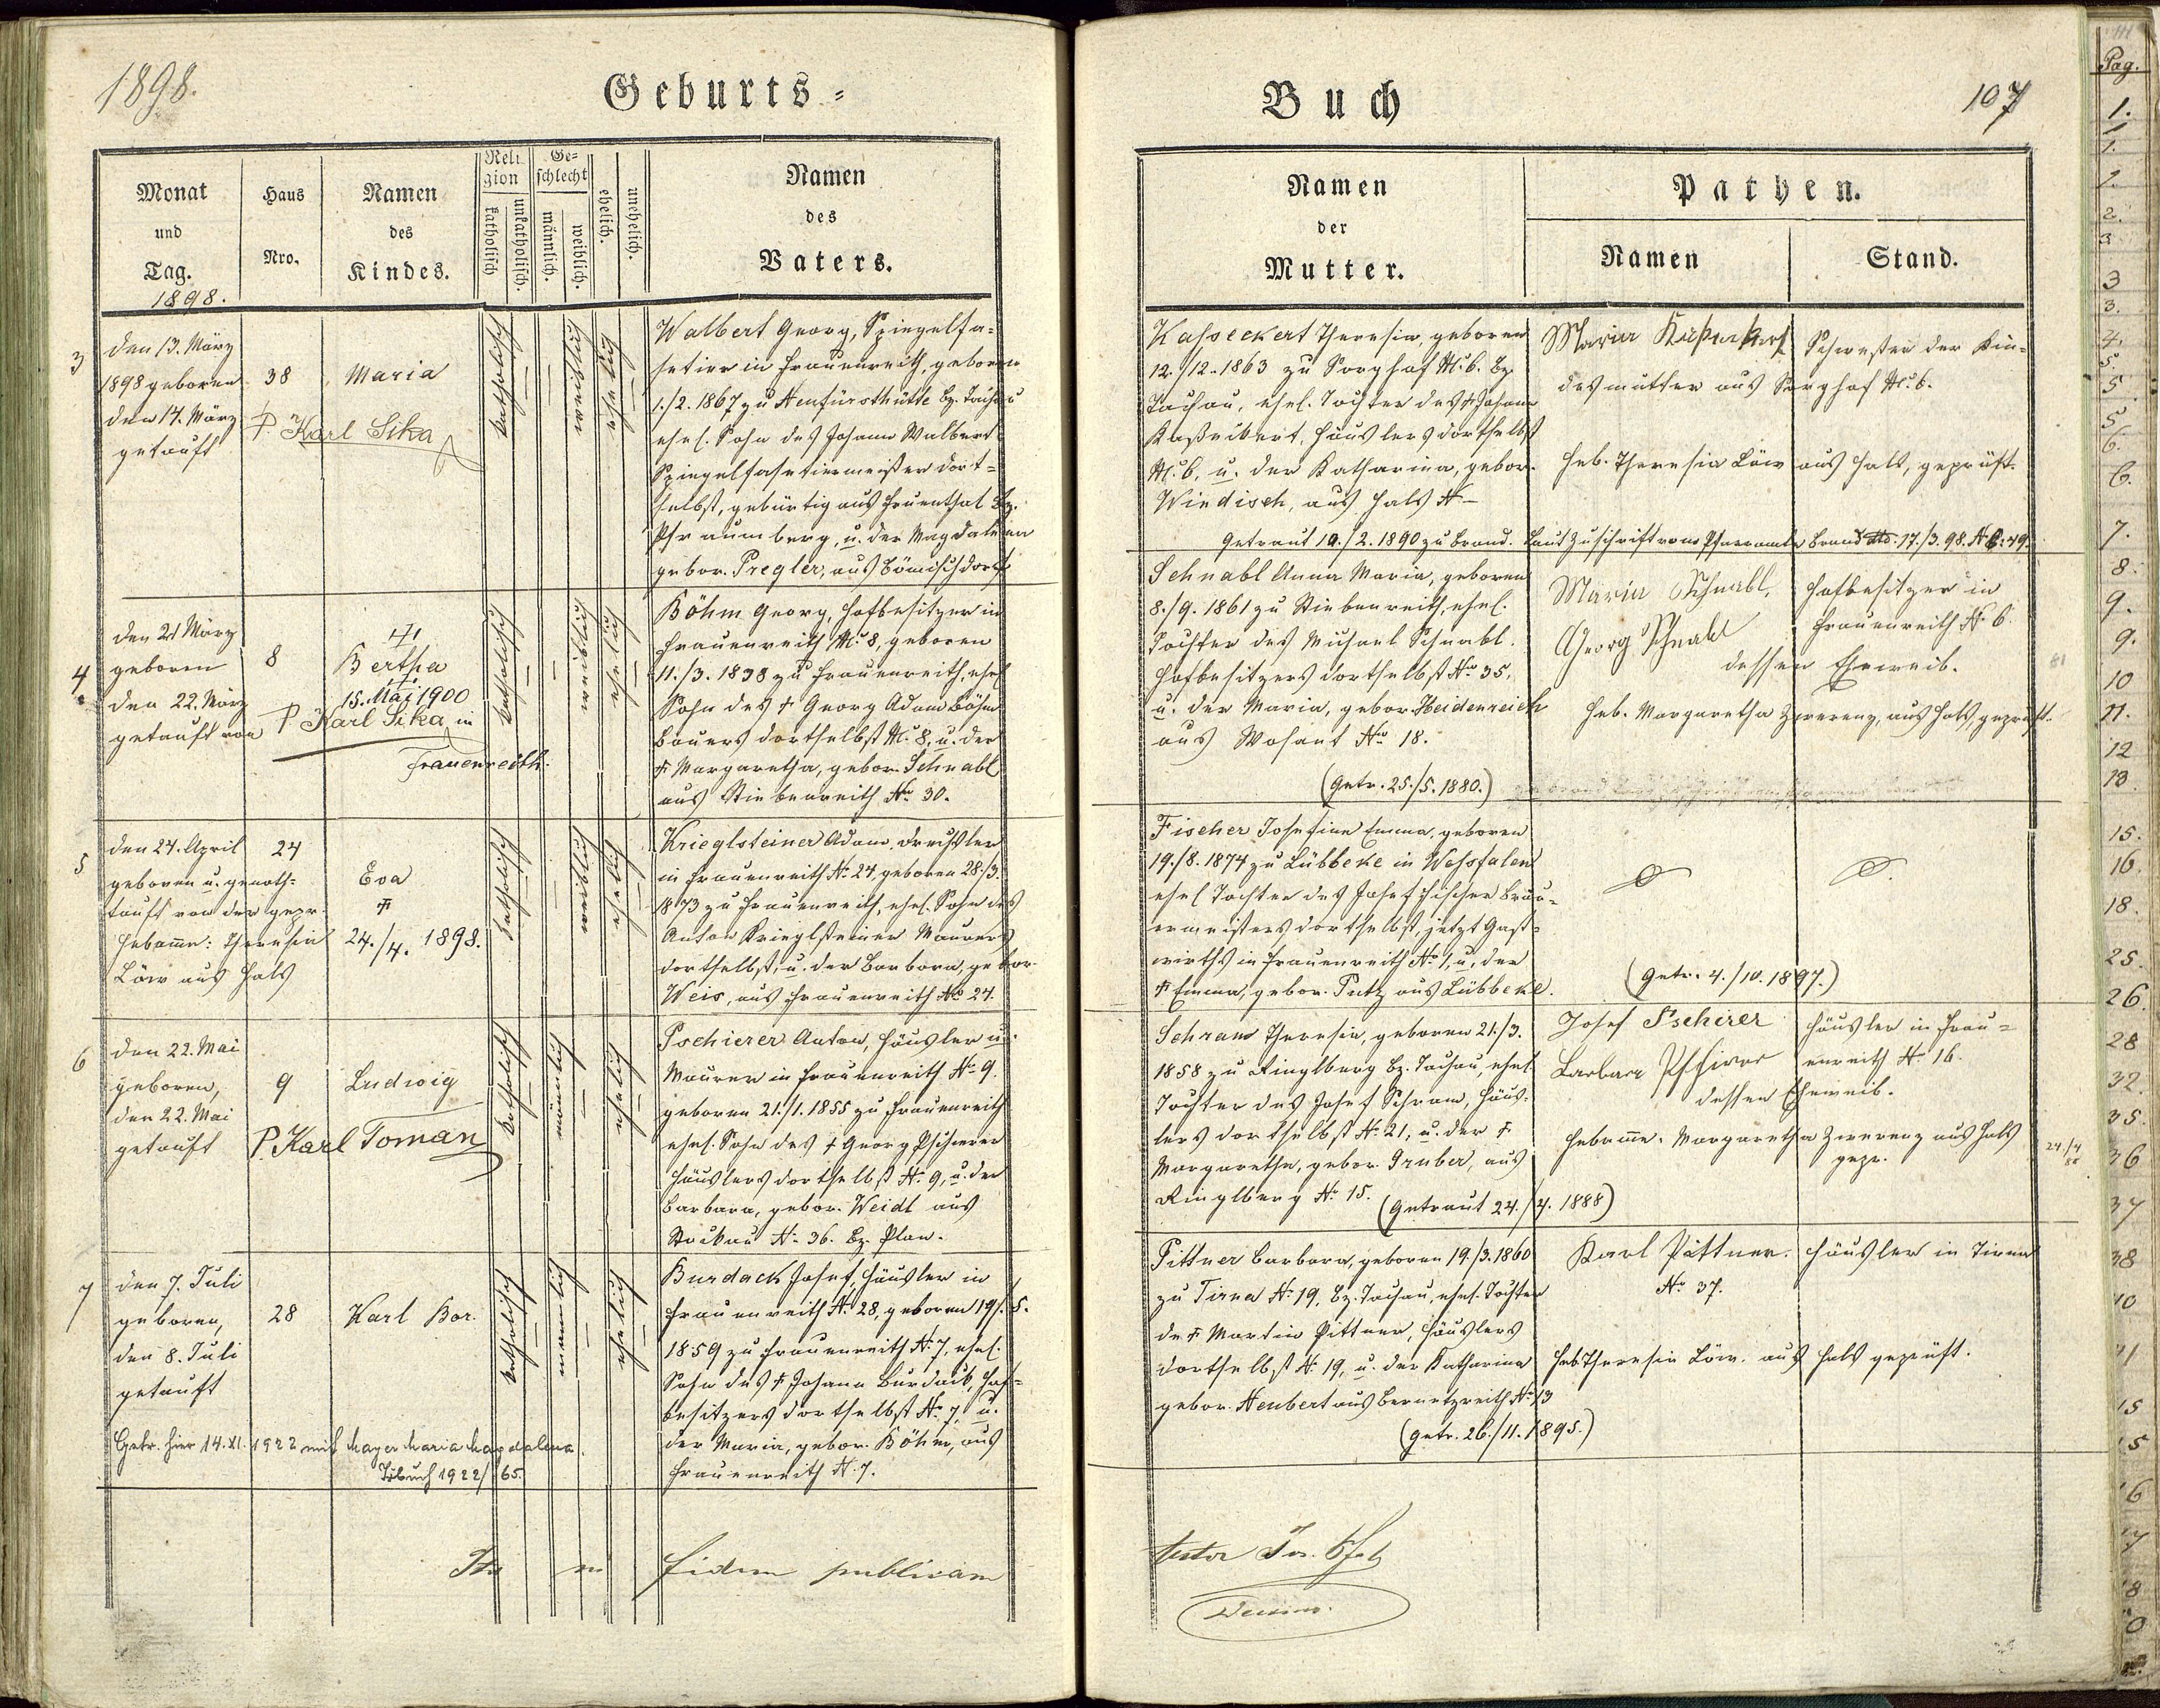 1898.
Geburts=
Monat
und
Tag.
1898.
Haus
Nro.
Namen
des
Kindes.
Reli
gion
katholisch
unkatholisch.
Ge=
schlecht
männlich.
weiblich.
ehelich.
unehelich.
Namen
des
Vaters.
3
den 13. März
1898 geboren
den 17. März
getauft
38
Maria
P. Karl Sika
katholisch
ehelich
Walbert Georg, Spiegelfa=
setier in Frauenreith, geboren
1./2. 1867 zu Neufürsthütte Bz. Tachau
ehel. Sohn des Johann Walbert
Spiegelfasetiermeister dort=
selbst, gebürtig aus Bz.
Pfraumberg, u. der Magdalena
gebor. Pregler, aus Bömischdorf
4
den 21 März
geboren
den 22. März
getauft von
8
Bertha
15. Mai 1900
P Karl Sika in
Frauenreith.
katholisch
weiblich
ehelich
Böhm Georg, Hofbesitzer in
Frauenreith N. 8, geboren
11./3. 1838 zu Frauenreith, ehel
Sohn des † Georg Adam Böhm
Bauers dortselbst N. 8, u. der
† Margaretha, gebor. Schnabl
aus Stiebenreith No. 30.
5
den 24. April
geboren u. genoth=
tauft von der gepr.
Hebamme: Theresia
Löw aus Hals
24
Eva
†
24./4. 1898.
katholisch
weiblich
ehelich
Krieglsteiner Adam, Drechsler
in Frauenreith No. 24, geboren 28./3.
1873 zu Frauenreith, ehel. Sohn des
Anton Krieglsteiner Maurers
dortselbst, u. der Barbara, gebor.
Weis, aus Frauenreith No 24.
6
den 22. Mai
geboren,
den 22. Mai
getauft
9
Ludwig
P. Karl Toman
katholisch
männlich
ehelich
Pschierer Anton, Häusler u.
Maurer in Frauenreith No. 9.
geboren 21./1. 1855 zu Frauenreith
ehel. Sohn des † Georg Pschierer
Häuslers dortselbst N. 9, u. der
Barbara, gebor. Weidl aus
Stockau N. 36. Bz. Plan.
7
den 7. Juli
geboren,
den 8. Juli
getauft
28
Karl Bor.
katholisch
mannlich
ehelich
Burdack Josef, Häusler in
Frauenreith N. 28, geboren 19./5.
1859 zu Frauenreith N. 7, ehel.
Sohn des † Johann Burdack, Hof=
besitzers dortselbst No. 7, u.
der Maria, gebor. Böhm, aus
Frauenreith N. 7.
Getr. hier 14. XI. 1922 mit Mayer Maria Magdalena.
Trbuch 1922/65.
fidem publicam
Buch
107
Namen
der
Mutter.
Pathen.
Namen
Stand.
Kasseckert Theresia, geboren
12./12. 1863 zu Sorghof N. 6. Bz.
Tachau, ehel. Tochter des † Johann
Kaßeckert, Häuslers dortselbst
N. 6, u. der Katharina, gebor.
Windisch, aus Hals N –
Schwester der Kin=
desmutter aus Sorghof N. 6.
Heb. Theresia Löw aus Hals, geprüft.
Getraut 19./2. 1890 zu Brand. Laut Zuschrift vom Pfarramte Brand dto. 17./3. 98. N. E. 49.
Schnabl Anna Maria, geboren
8./9. 1861 zu Stiebenreith, ehel.
Tochter des Michael Schnabl
Hofbesitzers dortselbst No. 35,
u. der Maria, gebor. Heidenreich
aus Wosant No. 18.
(Getr. 25./5. 1880.)
Maria Schnabl,
Georg Schnabl
Hofbesitzer in
Frauenreith N. 6.
dessen Eheweib.
Heb. Margaretha Zwerenz, aus Hals, geprüft.
81
Fischer Josefine Emma, geboren
19./8. 1874 zu Lübbeke in Wesfalen
ehel Tochter des Josef Fischer Brau=
ermeisters dortselbst, jetzt Gast=
wirths in Frauenreith No. 1, u. der
† Emma, gebor. Putz aus Lübbeke.
(Getr. 4./10. 1897.)
Schram Theresia, geboren 21./3.
1858 zu Ringlberg Bz. Tachau, ehel.
Tochter des Josef Schram, Häus=
lers dortselbst N. 21, u. der †
Margaretha, gebor. Gruber, aus
Ringlberg N. 15.
(Getraut 24./4. 1888)
Josef Pschierer
Barbara Pschierer
Häusler in Frau=
enreith N. 16.
dessen Eheweib.
Hebamme. Margaretha Zwerenz aus Hals
gepr.
24./4
88
Pittner Barbara, geboren 19./3. 1860
zu Tirna N. 19, Bz. Tachau, ehel. Tochter
de † Martin Pittner, Häuslers
dortselbst N. 19, u. der Katharina
gebor. Neubert aus Bernetzreith N. 13
(Getr. 26./11. 1895.)
Karl Pittner.
Häusler in Tirna
No. 37.
Heb. Theresia Löw. aus Hals geprüft.
Pag.
1.
1.
1.
1.
2.
3
3
3.
4.
5.
5
5
6.
6.
7.
8.
9.
9.
10
11.
12
13
15.
16.
18.
25.
26.
28
32.
35.
36
37
38